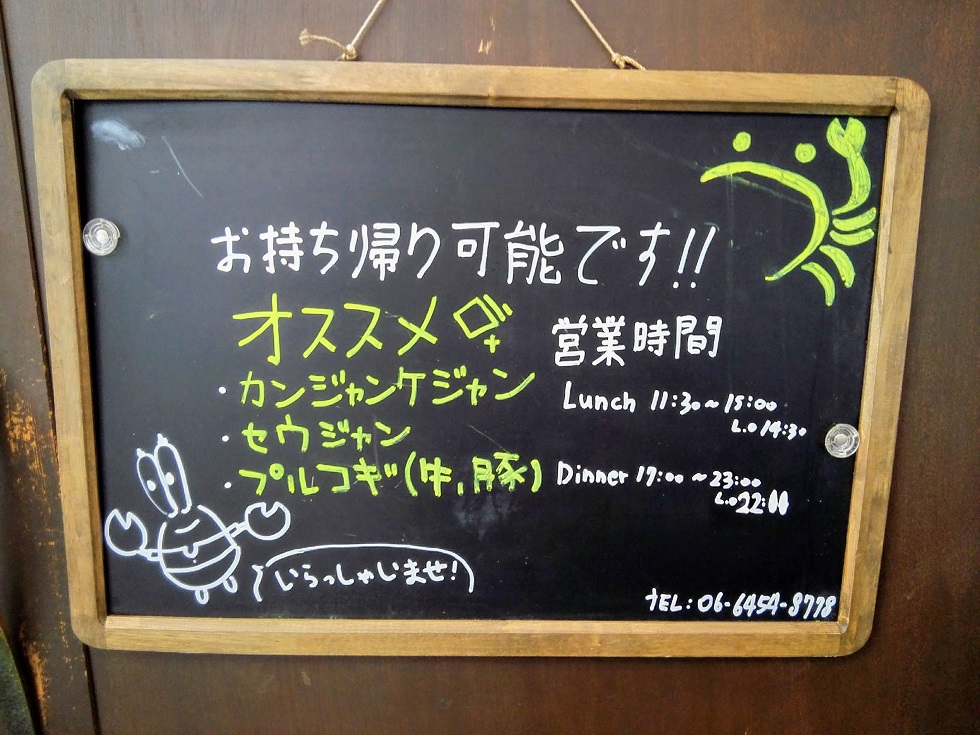 お持ち帰り可能です!!
オススメ
・カンジャンケジャン
・セウジャン
・プルコギ(牛,豚)
営業時間
Lunch 11:30~15:00
L.O 14:30
Dinner 17:00~23:00
L.O 22:00
いらっしゃいませ!
TEL:06-6454-8778